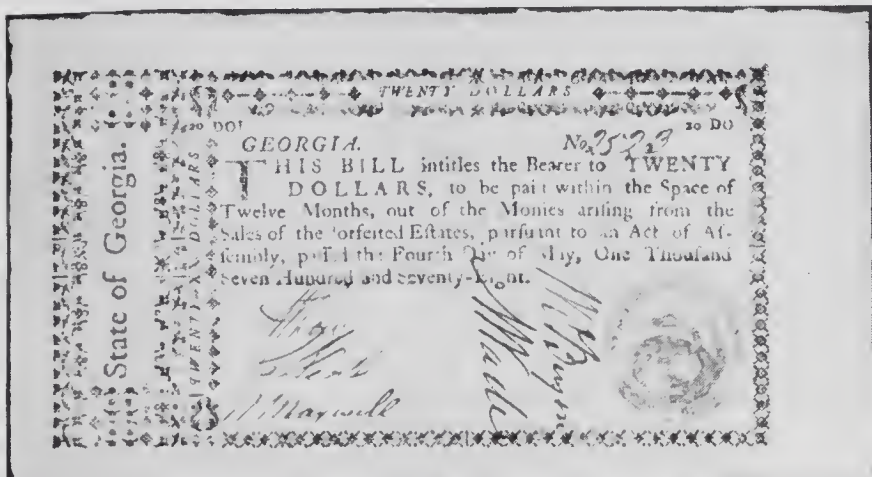 State of Georgia.
TWENTY DOLLARS
TWENTY DOLLARS
20 DO
GEORGIA. No 2523
THIS BILL intitles the Bearer to TWENTY
DOLLARS, to be paid within the Space of
Twelve Months, out of the Monies ariſing from the
Sales of the forfeited Eſtates, purſuant to an Act of Aſ-
ſembly, paſſed the Fourth Day of May, One Thouſand
Seven Hundred and Seventy-Eight.
Maxwell